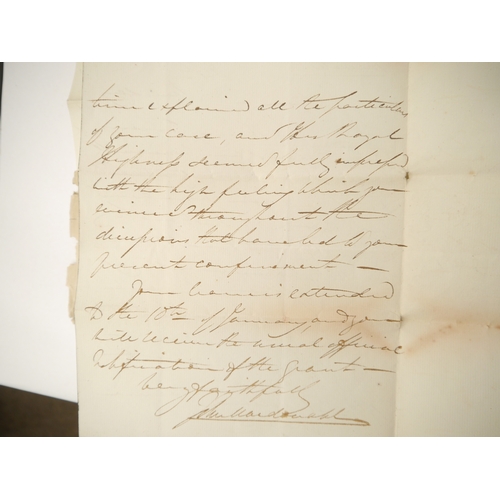 time explained all the particulars
of your case, and His Royal
Highness seemed fully impressed
with the high feeling which you
evinced throughout the
discussions that have led to your
present confinement —
Your leave is extended
to the 10th of January, and you
will receive the usual official
notification of the grant —
very faithfully
John Macdonald